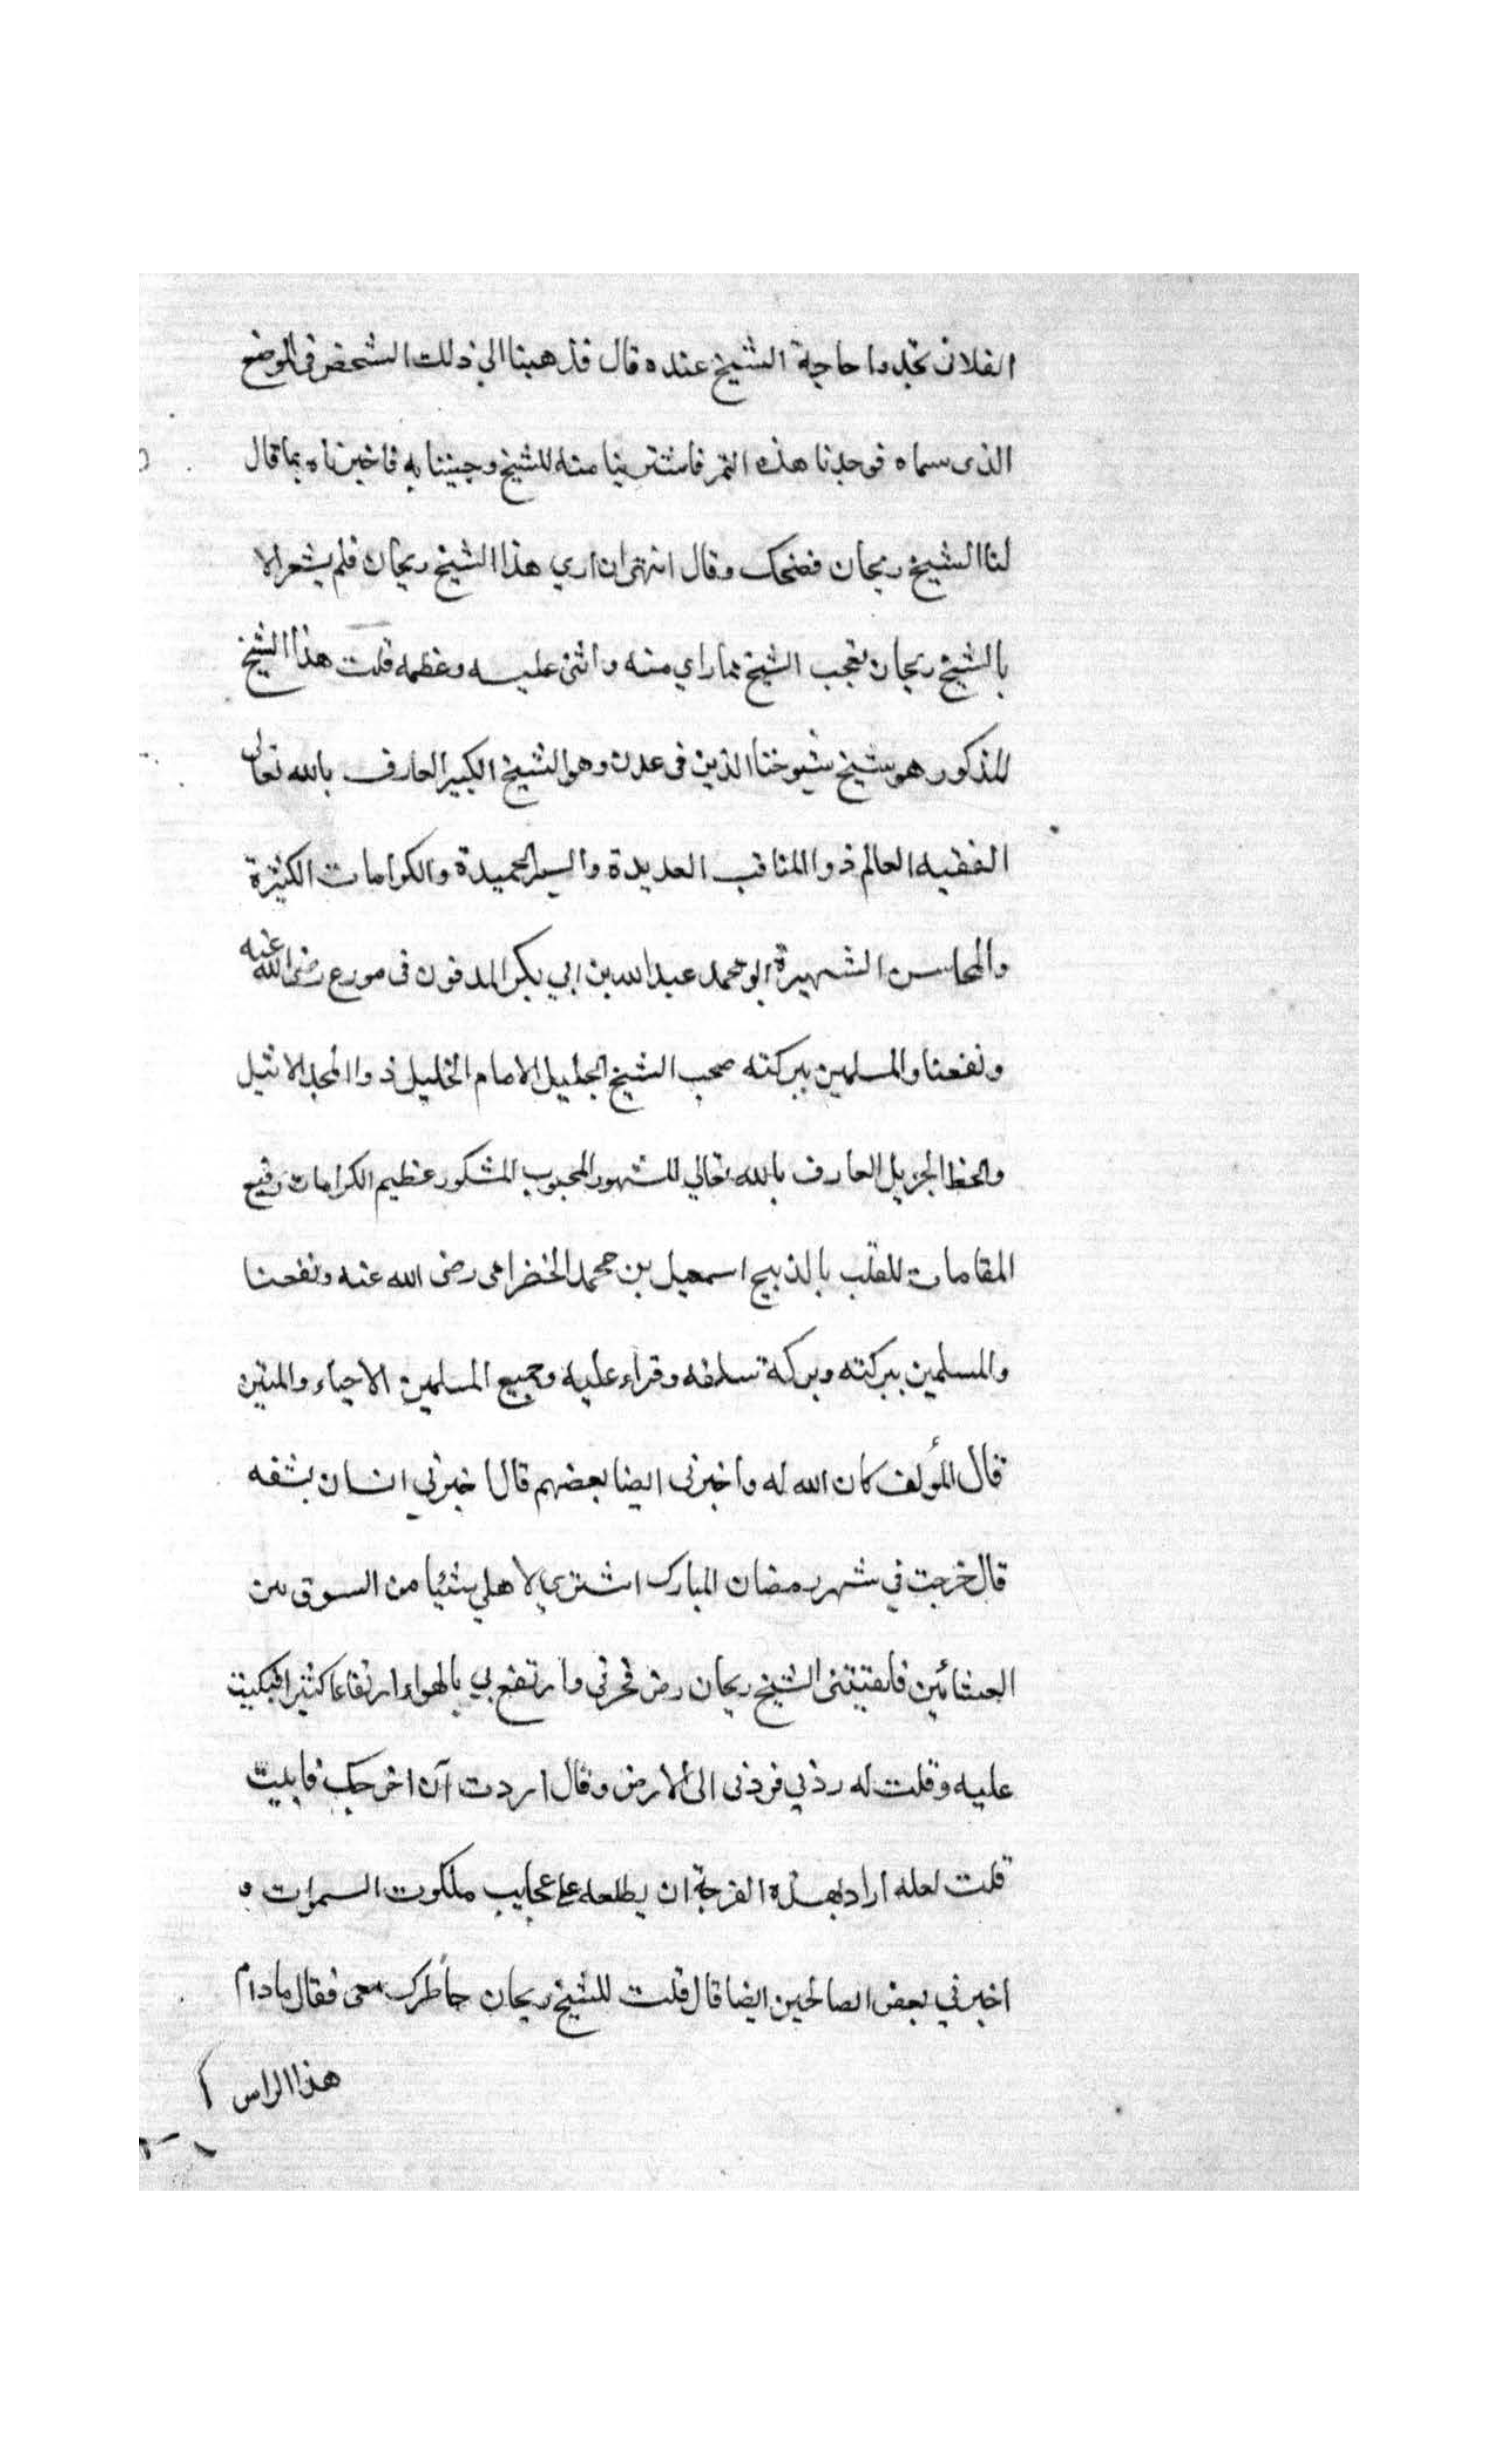 الفلان تجدوا حاجة الشيخ عنده قال فذهبنا الي ذلك الشخص في الموضع
الذى سماه فوجدنا هذه التمر فاشترينا منه للشيخ وجيننا به فاخبرناه بما قال
لنا الشيخ ريحان فضحك وقال اشتهى ان اري هذا الشيخ ريحان فلم يشعر الا
بالشيخ ريحان تعجب الشيخ مما راي منه واثنى عليه وعظمه قلت هذا الشيخ
المذكور هو شيخ شيوخنا الذين فى عدن وهو الشيخ الكبير العارف بالله تعالى
الفقيه العالم ذو المناقب العديدة والسير الحميدة والكرامات الكثيرة
والمحاسن الشهيرة ابو محمد عبدالله بن ابي بكر المدفون فى مورع رضى الله عنه
ونفعنا والمسلمين ببركته صحب الشيخ الجليل الامام الخليل ذوا المجد الاثيل
والحظ الجزيل العارف بالله تعالي المشهور المحبوب المشكور عظيم الكرامات رفيع
المقامات الملقب بالذبيح اسمعيل بن محمد الحضرامى رضى الله عنه ونفعنا
والمسلمين ببركته وبركة سلفه وقراء عليه وجميع المسلمين الاحياء والميتين
قال المؤلف كان الله له واخبرنى ايضا بعضهم قال اخبرني انسان بثقه
قال خرجت في شهر رمضان المبارك اشتري لاهلي شئيا من السوق بين
العشائين فالقيتنى الشيخ ريحان رض فجرنى وارتفع بي بالهواء ارتفاعا كثيرا فبكيت
عليه وقلت له ردني فردنى الى الارض وقال اردت آن افرجك فابيت
قلت لعله اراد بهذه الفرجة ان يطلعه على عجايب ملكوت السموات و
اخبرني بعض الصالحين ايضا قال قلت للشيخ ريحان خاطرك معى فقال مادام
هذا الراس